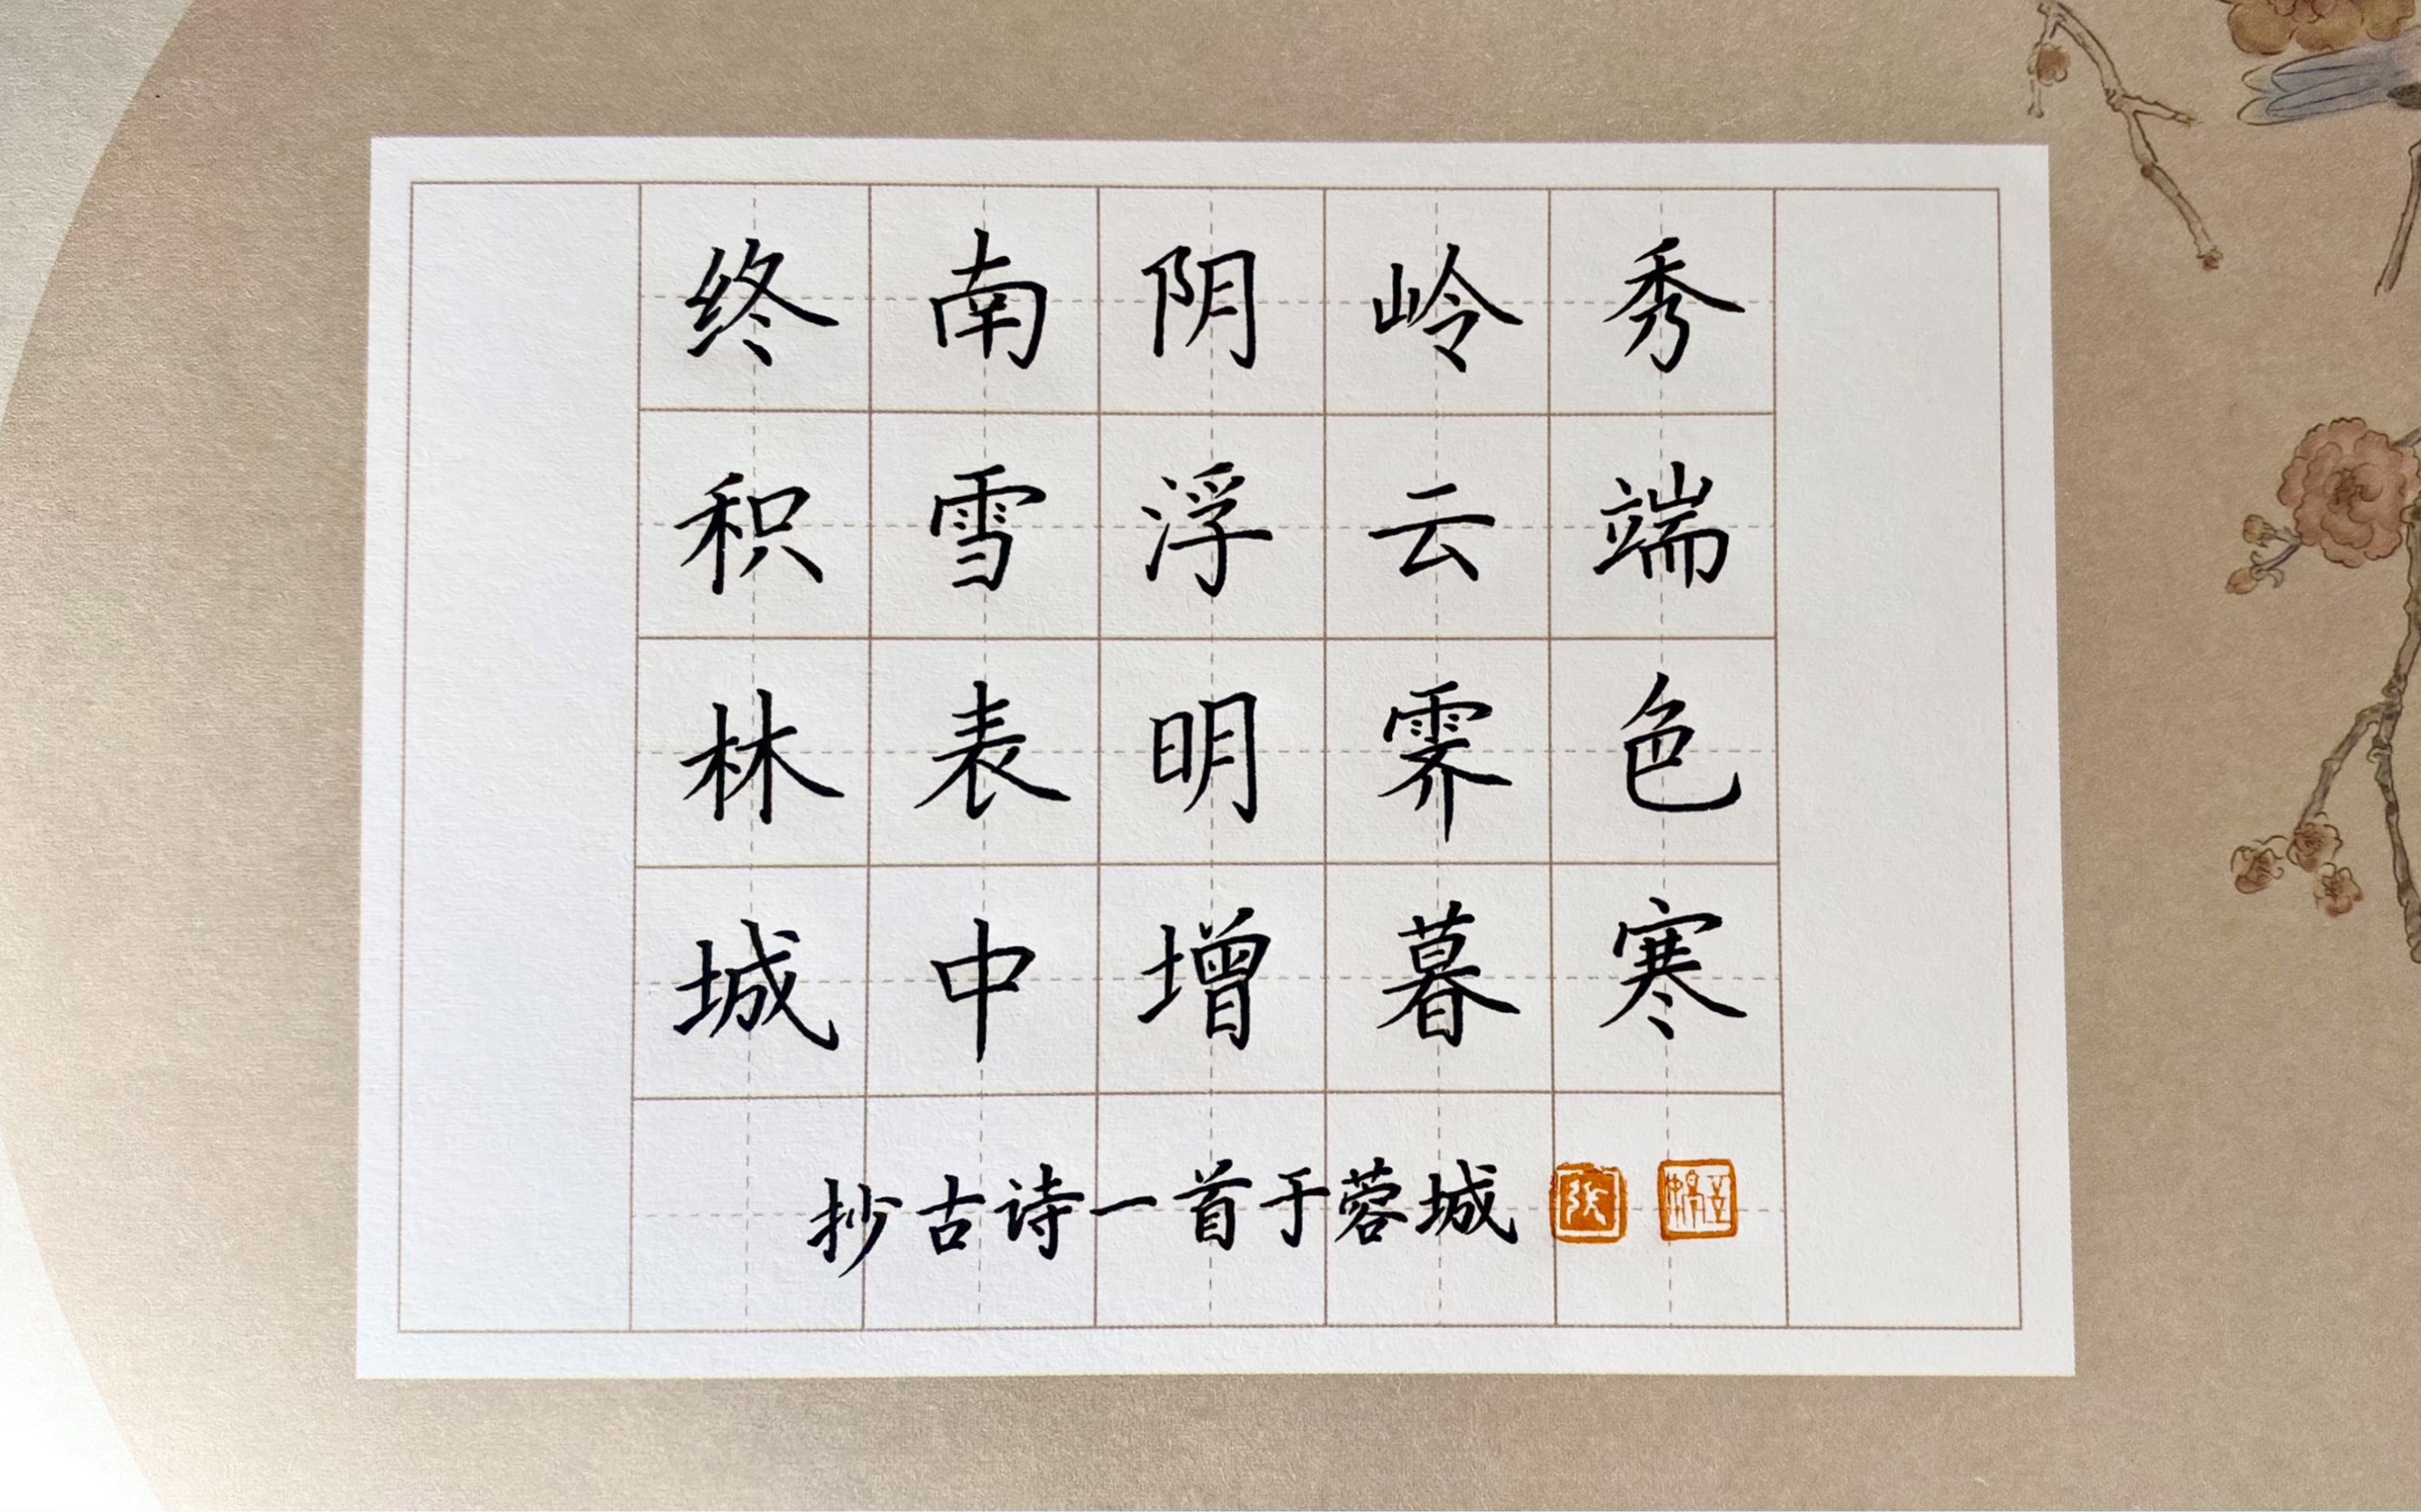 终南阴岭秀
积雪浮云端
林表明霁色
城中增暮寒
抄古诗一首于蓉城